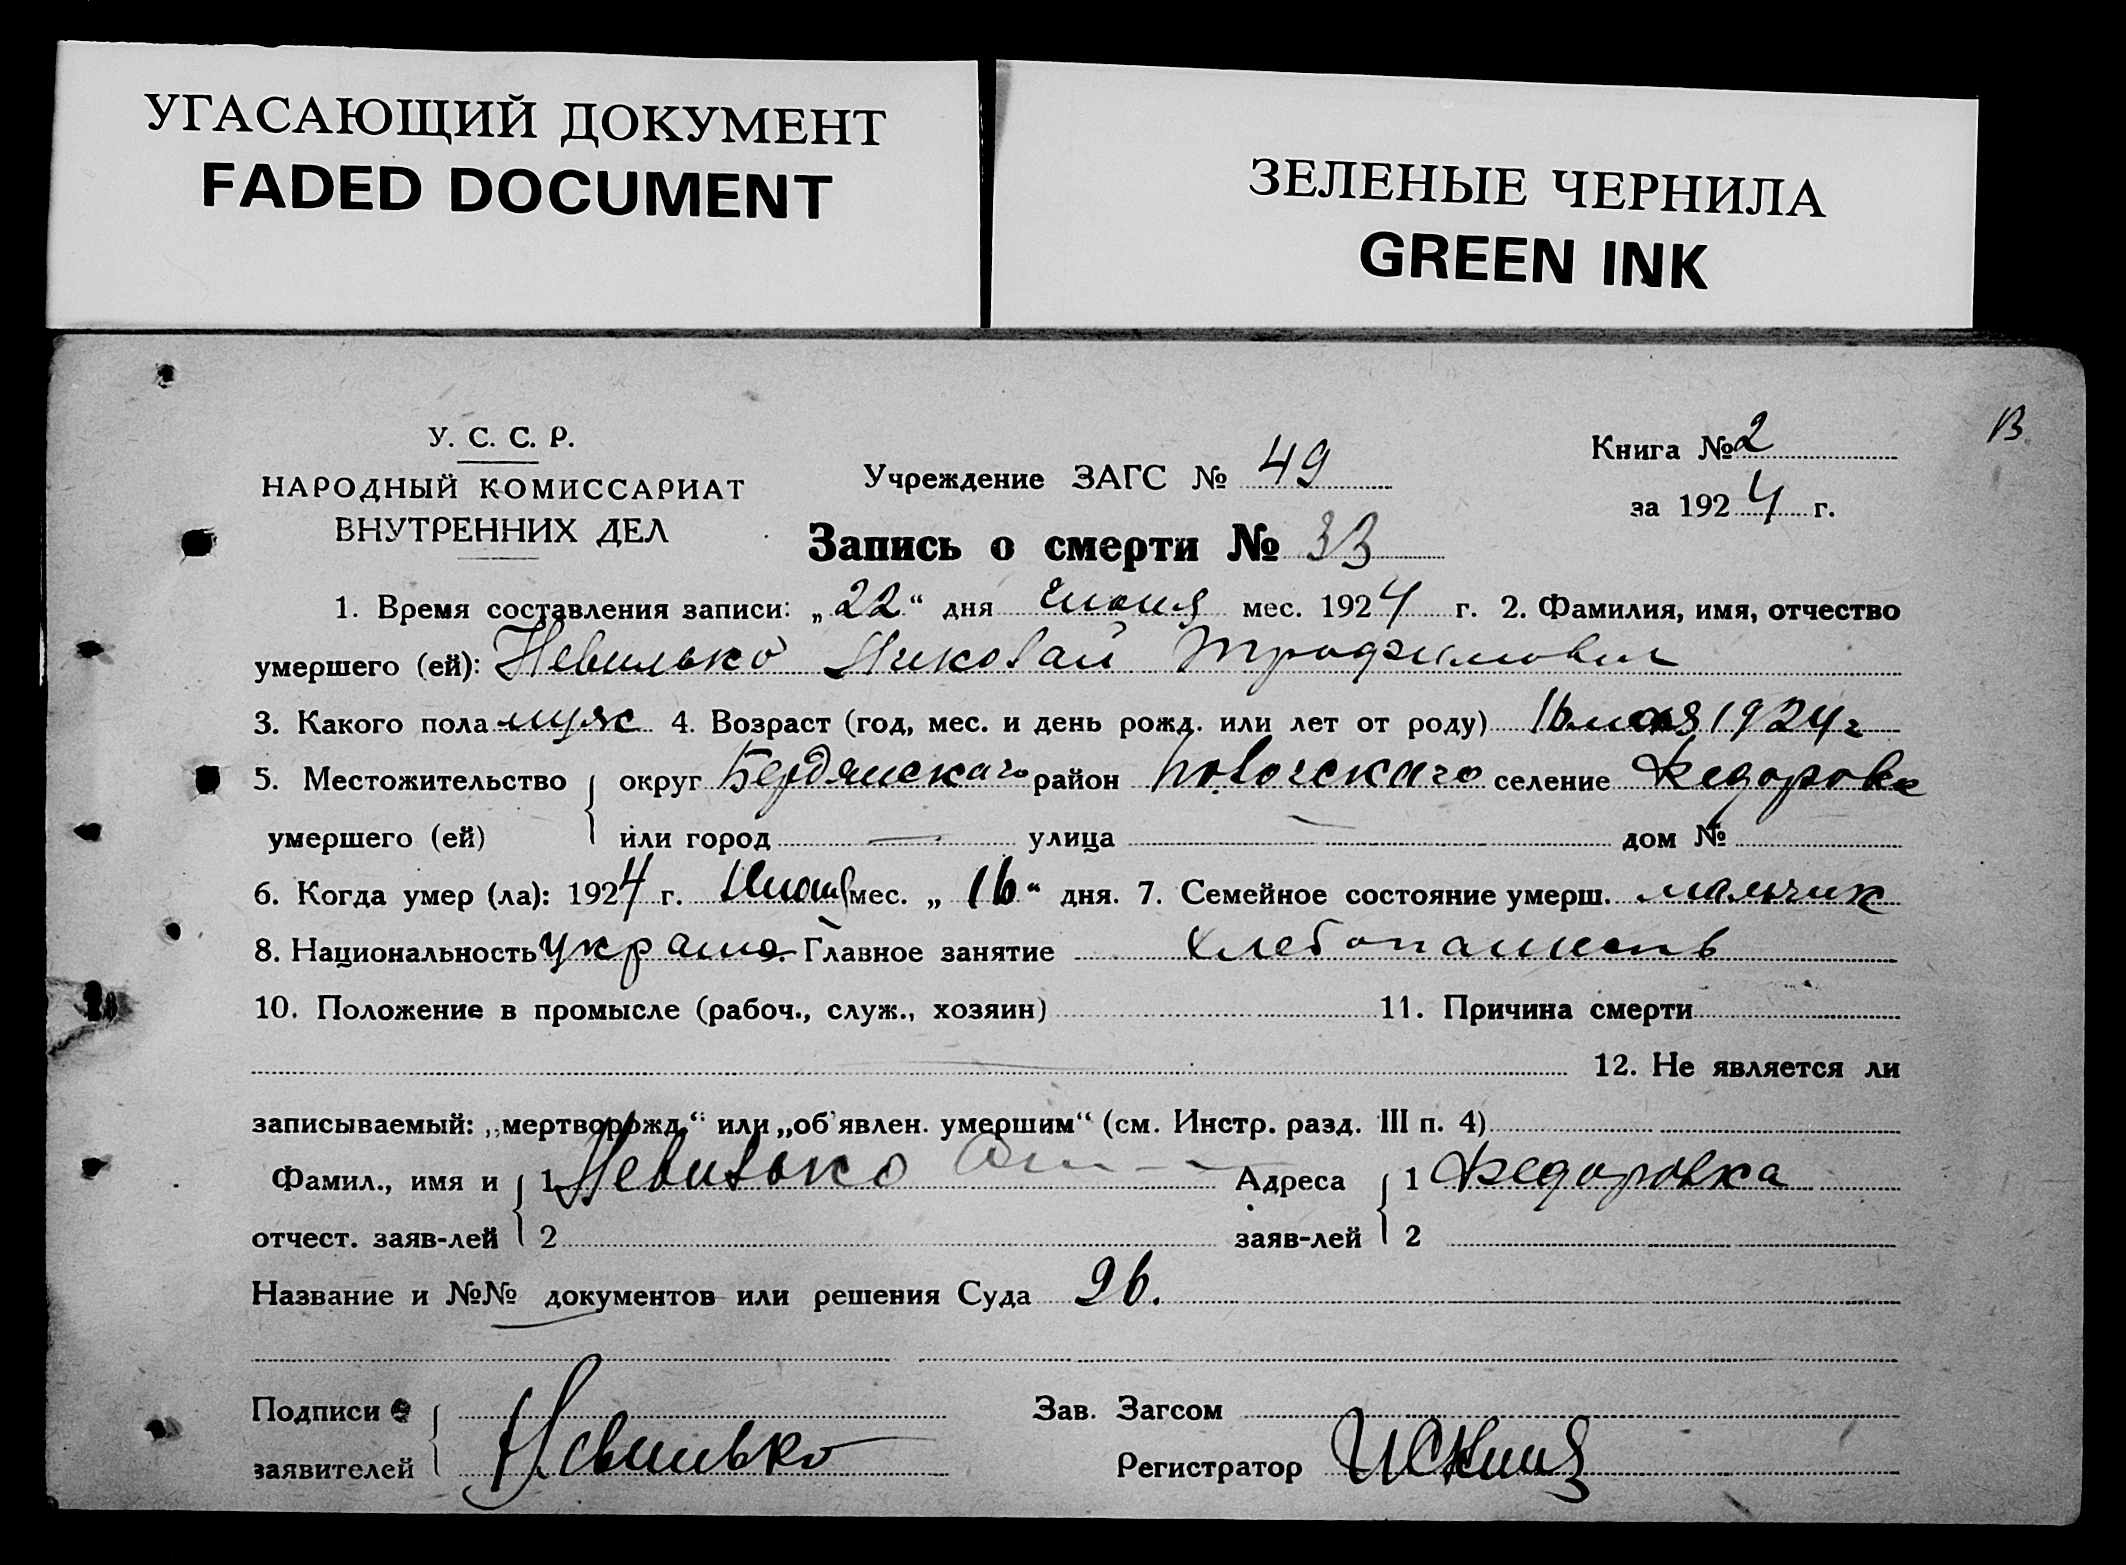 УГАСАЮЩИЙ ДОКУМЕНТ
FADED DOCUMENT
ЗЕЛЕНЫЕ ЧЕРНИЛА
GREEN INK
У. С. С. Р.
НАРОДНЫЙ КОМИССАРИАТ
ВНУТРЕННИХ ДЕЛ
Учреждение ЗАГС № 49
Книга № 2
за 1924 г.
Запись о смерти № 33
1. Время составления записи: „22“ дня Июня мес. 1924 г. 2. Фамилия, имя, отчество
умершего (ей): Невилько Николай Трофимович
3. Какого пола муж 4. Возраст (год, мес. и день рожд. или лет от роду) 1924 г
5. Местожительство округ Бердянскаго район селение Федоровка
умершего (ей) или город — улица — дом №
6. Когда умер (ла): 1924 г. Июня мес. „16“ дня. 7. Семейное состояние умерш. мальчик
8. Национальность Главное занятие хлебопашество
10. Положение в промысле (рабоч., служ., хозяин) 11. Причина смерти
12. Не является ли
записываемый: „мертворожд.“ или „об'явлен. умершим“ (см. Инстр. разд. III п. 4)
Фамил., имя и 1 Невилько Адреса 1 Федоровка
отчест. заяв-лей 2 заяв-лей 2
Название и №№ документов или решения Суда 26.
Подписи Зав. Загсом
заявителей Невилько Регистратор